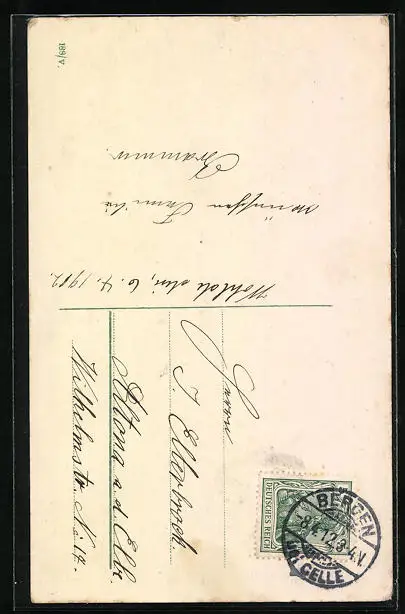 189/V.
Wohlde den, 6. 4. 1912.
wünschen Familie
Brammer.
Herrn
J. Ellerbrock
Altona a. d. Elbe.
Wilhelmstr. No. 14
DEUTSCHES REICH
BERGEN
-8.4.12.3-4.V.
CELLE